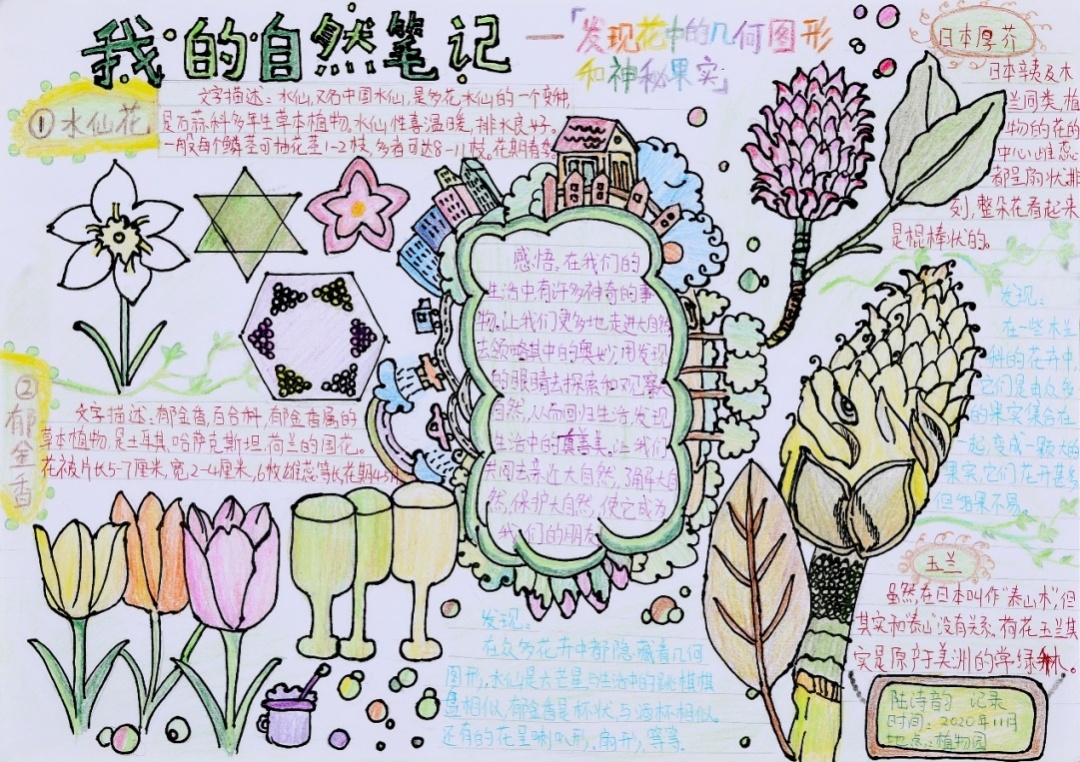 我的自然笔记
—「发现花中的几何图形
和神秘果实」
①水仙花
文字描述：水仙，又名中国水仙，是多花水仙的一个变种，
是石蒜科多年生草本植物。水仙性喜温暖，排水良好。
一般每个鳞茎可抽花茎1-2枝，多者可达8-11枝。花期春季。
②郁金香
文字描述：郁金香，百合科，郁金香属的
草本植物，是土耳其，哈萨克斯坦，荷兰的国花。
花被片长5-7厘米，宽2-4厘米，6枚雄蕊等长，花期4-5月
感悟，在我们的
生活中，有许多神奇的事
物。让我们更多地走进大自然
去领略其中的奥妙，用发现
的眼睛去探索和观察大
自然，从而回归生活，发现
生活中的真善美。让我们
共同去亲近大自然，了解大自
然，保护大自然，使它成为
我们的朋友
发现：
在众多花卉中都隐藏着几何
图形，水仙是六芒星与生活中的跳棋棋
盘相似，郁金香是杯状，与酒杯相似。
还有的花呈喇叭形，扇形，等等。
日本厚朴
日本辛夷及木
兰同类，植
物的花的
中心雌蕊
都呈扇状排
列，整朵花看起来
是棍棒状的。
发现：
在一些木兰
科的花卉中，
它们是由众多
的果实集合在
一起，变成一颗大的
果实，它们花开甚多
但结果不易。
玉兰
虽然在日本叫作“泰山木”，但
其实和“泰山”没有关系。荷花玉兰其
实是原产于美洲的常绿树。
陆诗韵 记录
时间：2020年11月
地点：植物园